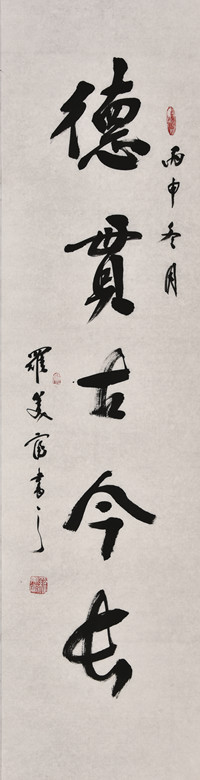 丙申冬月
德貫古今長
羅美富書之